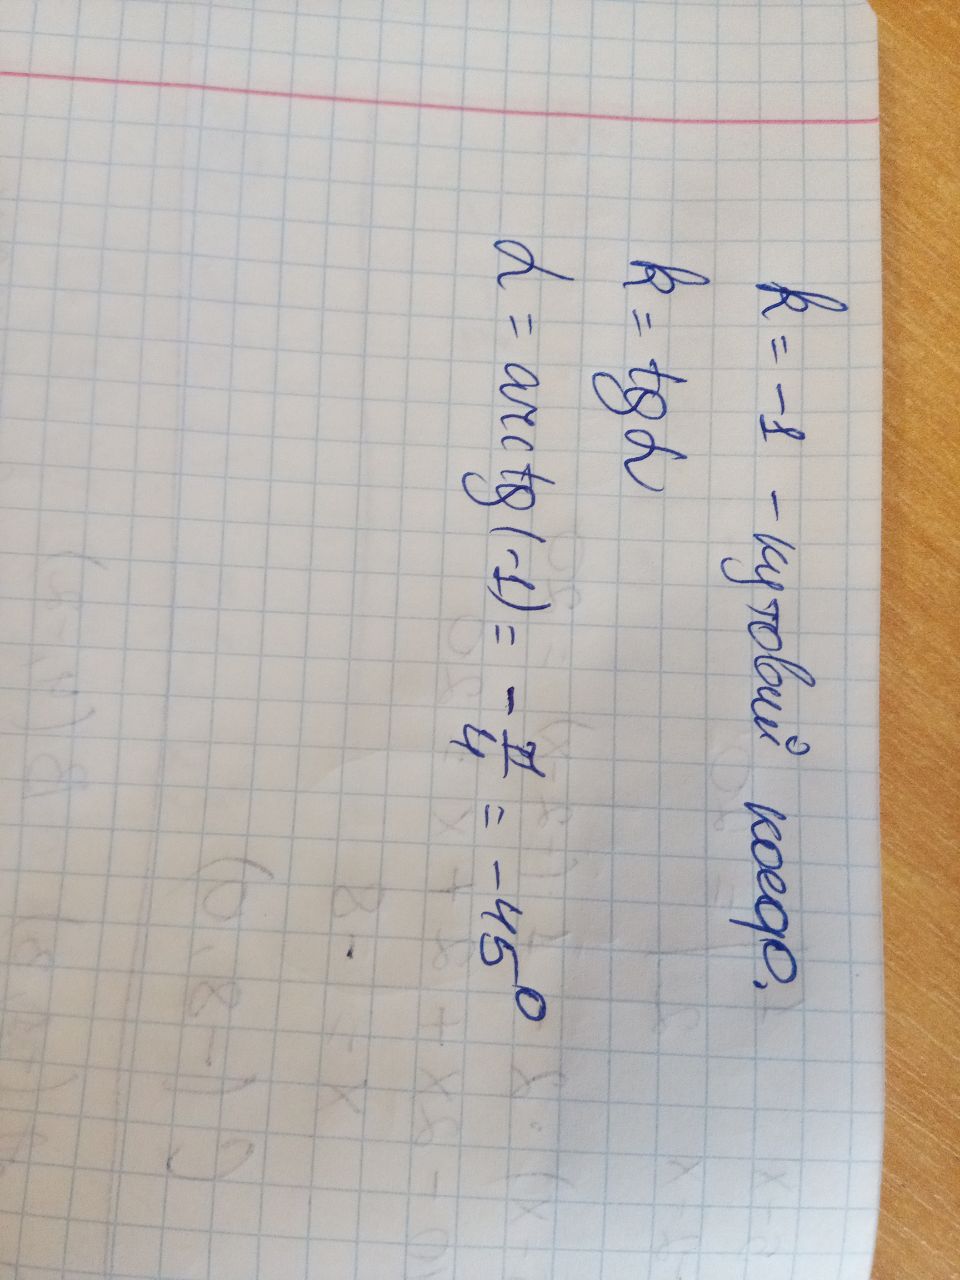 k = -1 - кутовий коеф.
k = tg α
α = arctg(-1) = - π/4 = -45°